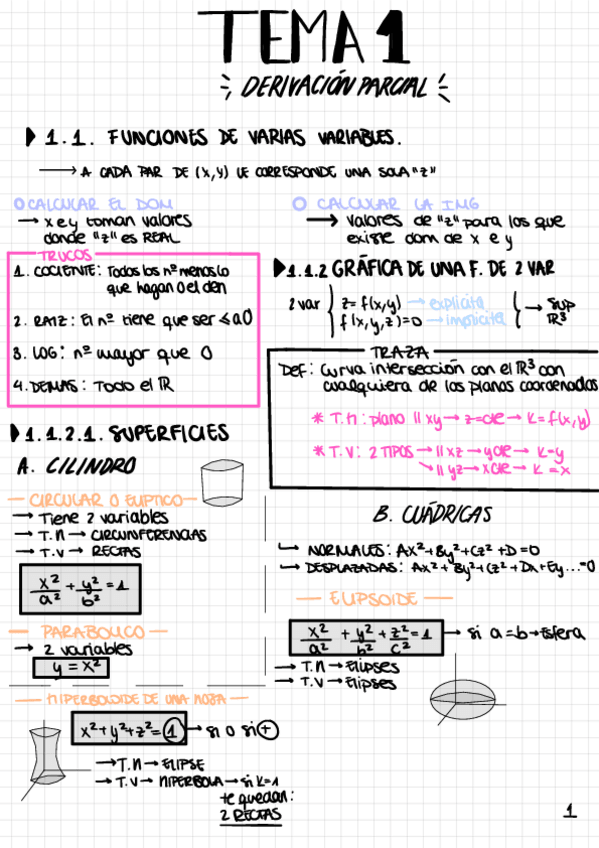 TEMA 1
DERIVACIÓN PARCIAL
1.1. FUNCIONES DE VARIAS VARIABLES.
→ A CADA PAR DE (X,Y) LE CORRESPONDE UNA SOLA "Z"
CALCULAR EL DOM
→ x e y toman valores
donde "z" es REAL
CALCULAR LA IMG
→ valores de "z" para los que
existe dom de x e y
TRUCOS
1. COCIENTE: Todos los nº menos los
que hagan 0 el den
2. RAIZ: El nº tiene que ser ≤ a 0
3. LOG: nº mayor que 0
4. DEMAS: Todo el IR
1.1.2 GRÁFICA DE UNA F. DE 2 VAR
2 var { z = f(x,y) → explicita
f(x,y,z)=0 → implicita } → SUP
IR³
TRAZA
DEF: Curva intersección con el IR³ con
cualquiera de los planos coordenados
* T.H: plano || xy → z=cte → K=f(x,y)
* T.V: 2 TIPOS → || xz → y cte → K=y
→ || yz → x cte → K=x
1.1.2.1. SUPERFICIES
A. CILINDRO
CIRCULAR O ELIPTICO
→ Tiene 2 variables
→ T.H → CIRCUNFERENCIAS
→ T.V → RECTAS
x²/a² + y²/b² = 1
PARABOLICO
→ 2 variables
y = x²
HIPERBOLOIDE DE UNA HOJA
x²+y²+z²=1 → si 0 si +
→ T.H → ELIPSE
→ T.V → HIPERBOLA → si K=1
te quedan:
2 RECTAS
B. CUÁDRICAS
↳ NORMALES: Ax²+By²+Cz²+D=0
↳ DESPLAZADAS: Ax²+By²+Cz²+Dx+Ey...=0
ELIPSOIDE
x²/a² + y²/b² + z²/c² = 1 → si a=b → Esfera
→ T.H → Elipses
→ T.V → Elipses
1